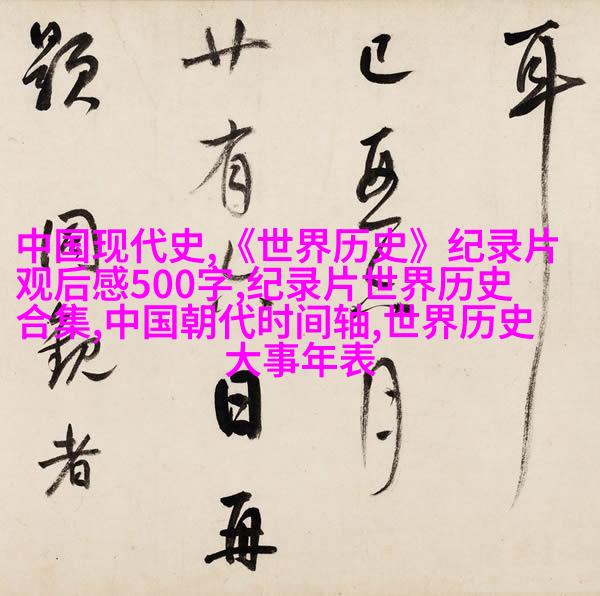 中国现代史,《世界历史》纪录片
观后感500字,纪录片世界历史
合集,中国朝代时间轴,世界历史
大事年表
耳
己亥五月
廿有六日再
題觀者